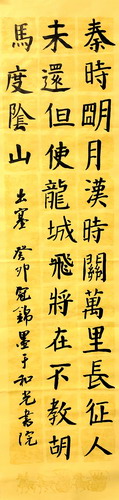 秦時明月漢時關萬里長征人
未還但使龍城飛將在不教胡
馬度陰山
出塞 癸卯冠錦墨于和光書院